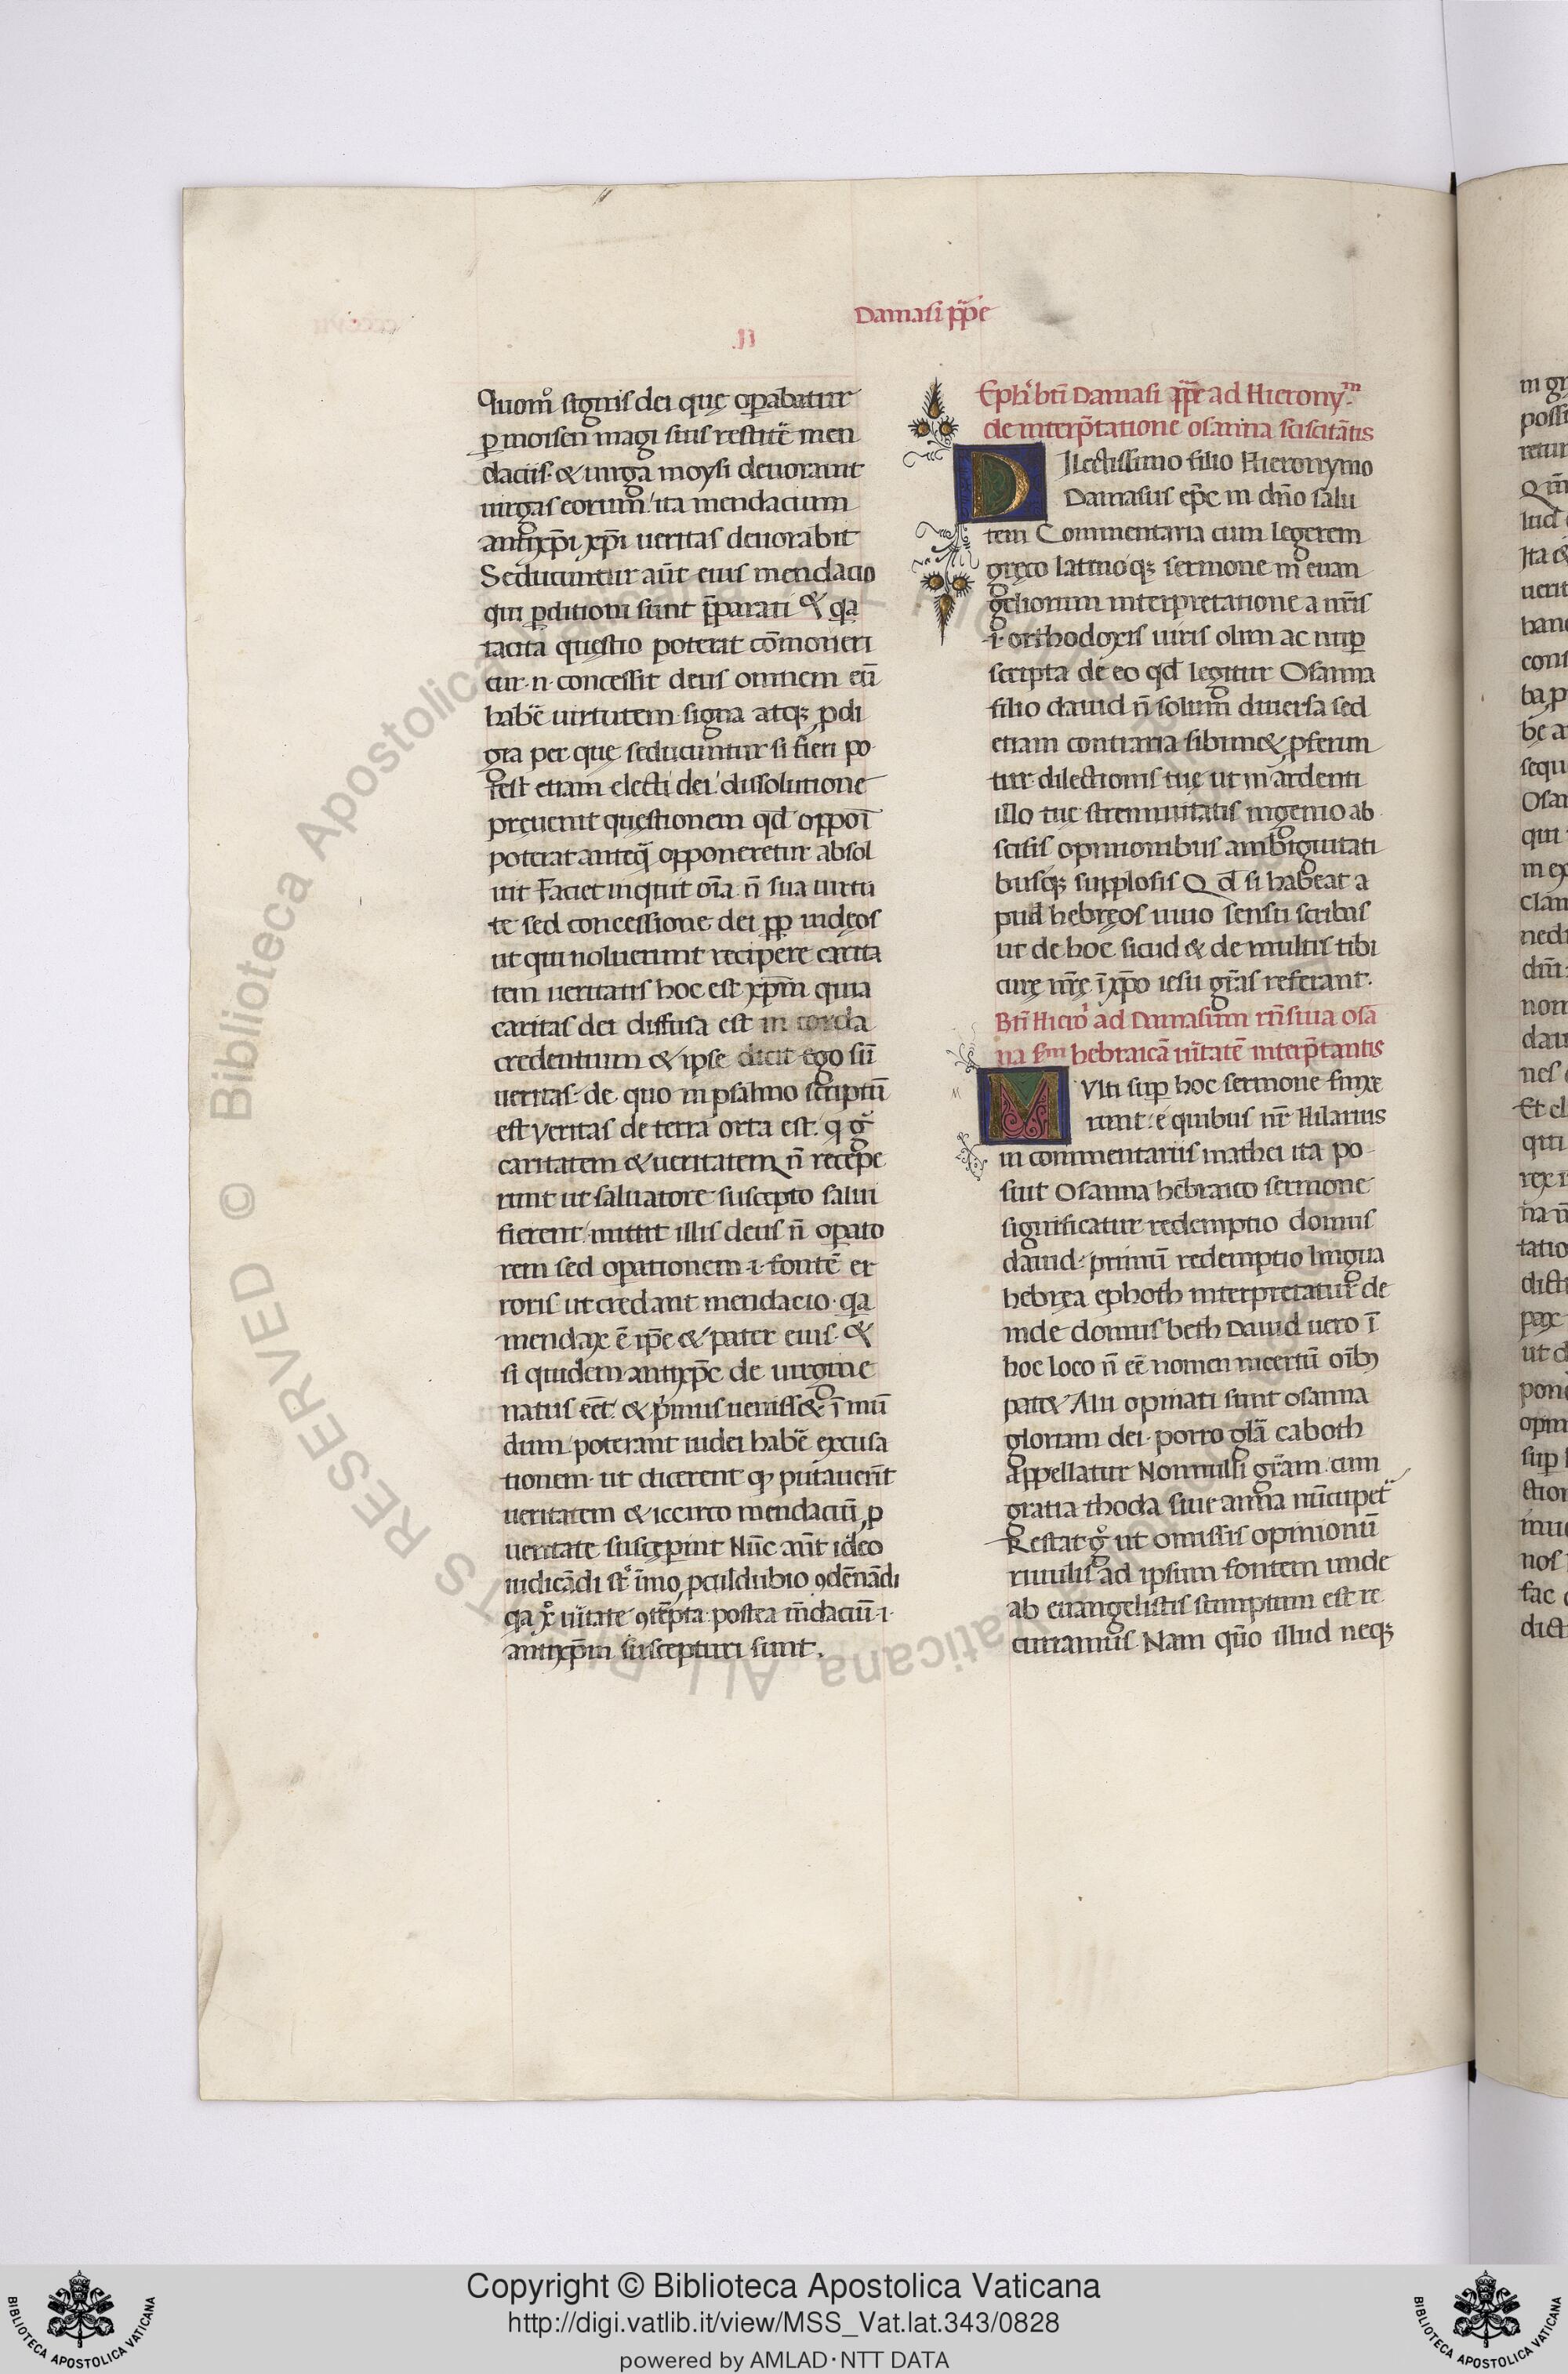 Damasi pp̄e
.II.
Quom̊ signis dei que oꝑabatur
ꝑ moisen magi suis restitē men
daciis. & uirga moysi deuorauit
uirgas eorum: ita mendacium
antixp̄i xp̄i ueritas deuorabit
Seducuntur aūt eius mendacio
qui ꝑditioni sunt p̄parati & qa
tacita questio poterat cōmoneri
cur .n. concessit deus omnem eū
habē uirtutem signa atqꝫ ꝓdi
gia per que seducuntur si fieri po
test etiam electi dei: dissolutione
preuenit questionem qd oppoī
poterat anteq̄ opponeretur absol
uit Faciet inquit oīa n̄ sua uirtu
te sed concessione dei ꝓꝑ iudęos
ut qui noluerunt recipere carita
tem ueritatis hoc est xp̄m quia
caritas dei diffusa est in corda
credentium & ipse dicit ego sū
ueritas. de quo in psalmo scriptū
est Veritas de terra orta est. q g̊
caritatem & ueritatem n̄ recepe
runt ut saluatore suscepto salui
fierent: mittit illis deus n̄ oꝑato
rem sed oꝑationem .i. fontē er
roris ut credant mendacio. qa
mendax ē ip̄e & pater eius. &
si quidem antixp̄c de uirgine
natus eēt & p̄mus uenisset ī mū
dum: poterant iudei habē excusa
tionem. ut dicerent qꝫ putauerīt
ueritatem & iccirco mendaciū ꝓ
ueritate susceperint Nūc aūt ideo
iudicādi st̄ īmo ꝓculdubio ꝯdēnādi
qa x̊ uitate ꝯtēpta postea m̄daciū .i.
antixp̄m suscepturi sunt.
Ep̄l' bt̄i Damasi pp̄e ad Hierony.ᵐ
de interp̄tatione osanna sciscitātis
DIlectissimo filio Hieronymo
Damasus ep̄c in dn̄o salu
tem Commentaria cum legerem
gręco latinoqꝫ sermone in euan
geliorum interpretatione a nr̄is
.i. orthodoxis uiris olim ac nuꝑ
scripta de eo qd legitur Osanna
filio dauid n̄ solum diuersa sed
etiam contraria sibimet ꝓferun
tur. dilectionis tuę ut in ardenti
illo tuę strenuitatis ingenio ab
scisis opinionibus ambiguitati
busqꝫ supplosis Qd si habeat a
pud hebręos uiuo sensu scribas
ut de hoc sicud & de multis tibi
curę nr̄ę ī xp̄o iesu gr̄as referant.
Bt̄i Hiero' ad Damasum rn̄siua osā
na sm̄ hebraicā uitatē interp̄tantis
MVlti suꝑ hoc sermone finxe
runt. e quibus nr̄ Hilarius
in commentariis mathei ita po
suit Osanna hebraico sermone
significatur redemptio domus
dauid. primū redemptio lingua
hebręa ephoth interpretatur de
inde domus beth Dauid uero ī
hoc loco n̄ eē nomen incertū oīb
patet Alii opinati sunt osanna
gloriam dei. porro gl̄a caboth
appellatur Nonnulli gr̄am. cum
gratia thoda siue anna nūcupet̄
Restat g̊ ut omissis opinionū
riuulis ad ipsum fontem unde
ab euangelistis sumptum est re
curramus Nam quō illud neqꝫ
Copyright © Biblioteca Apostolica Vaticana
http://digi.vatlib.it/view/MSS_Vat.lat.343/0828
powered by AMLAD·NTT DATA
BIBLIOTECA APOSTOLICA VATICANA
BIBLIOTECA APOSTOLICA VATICANA